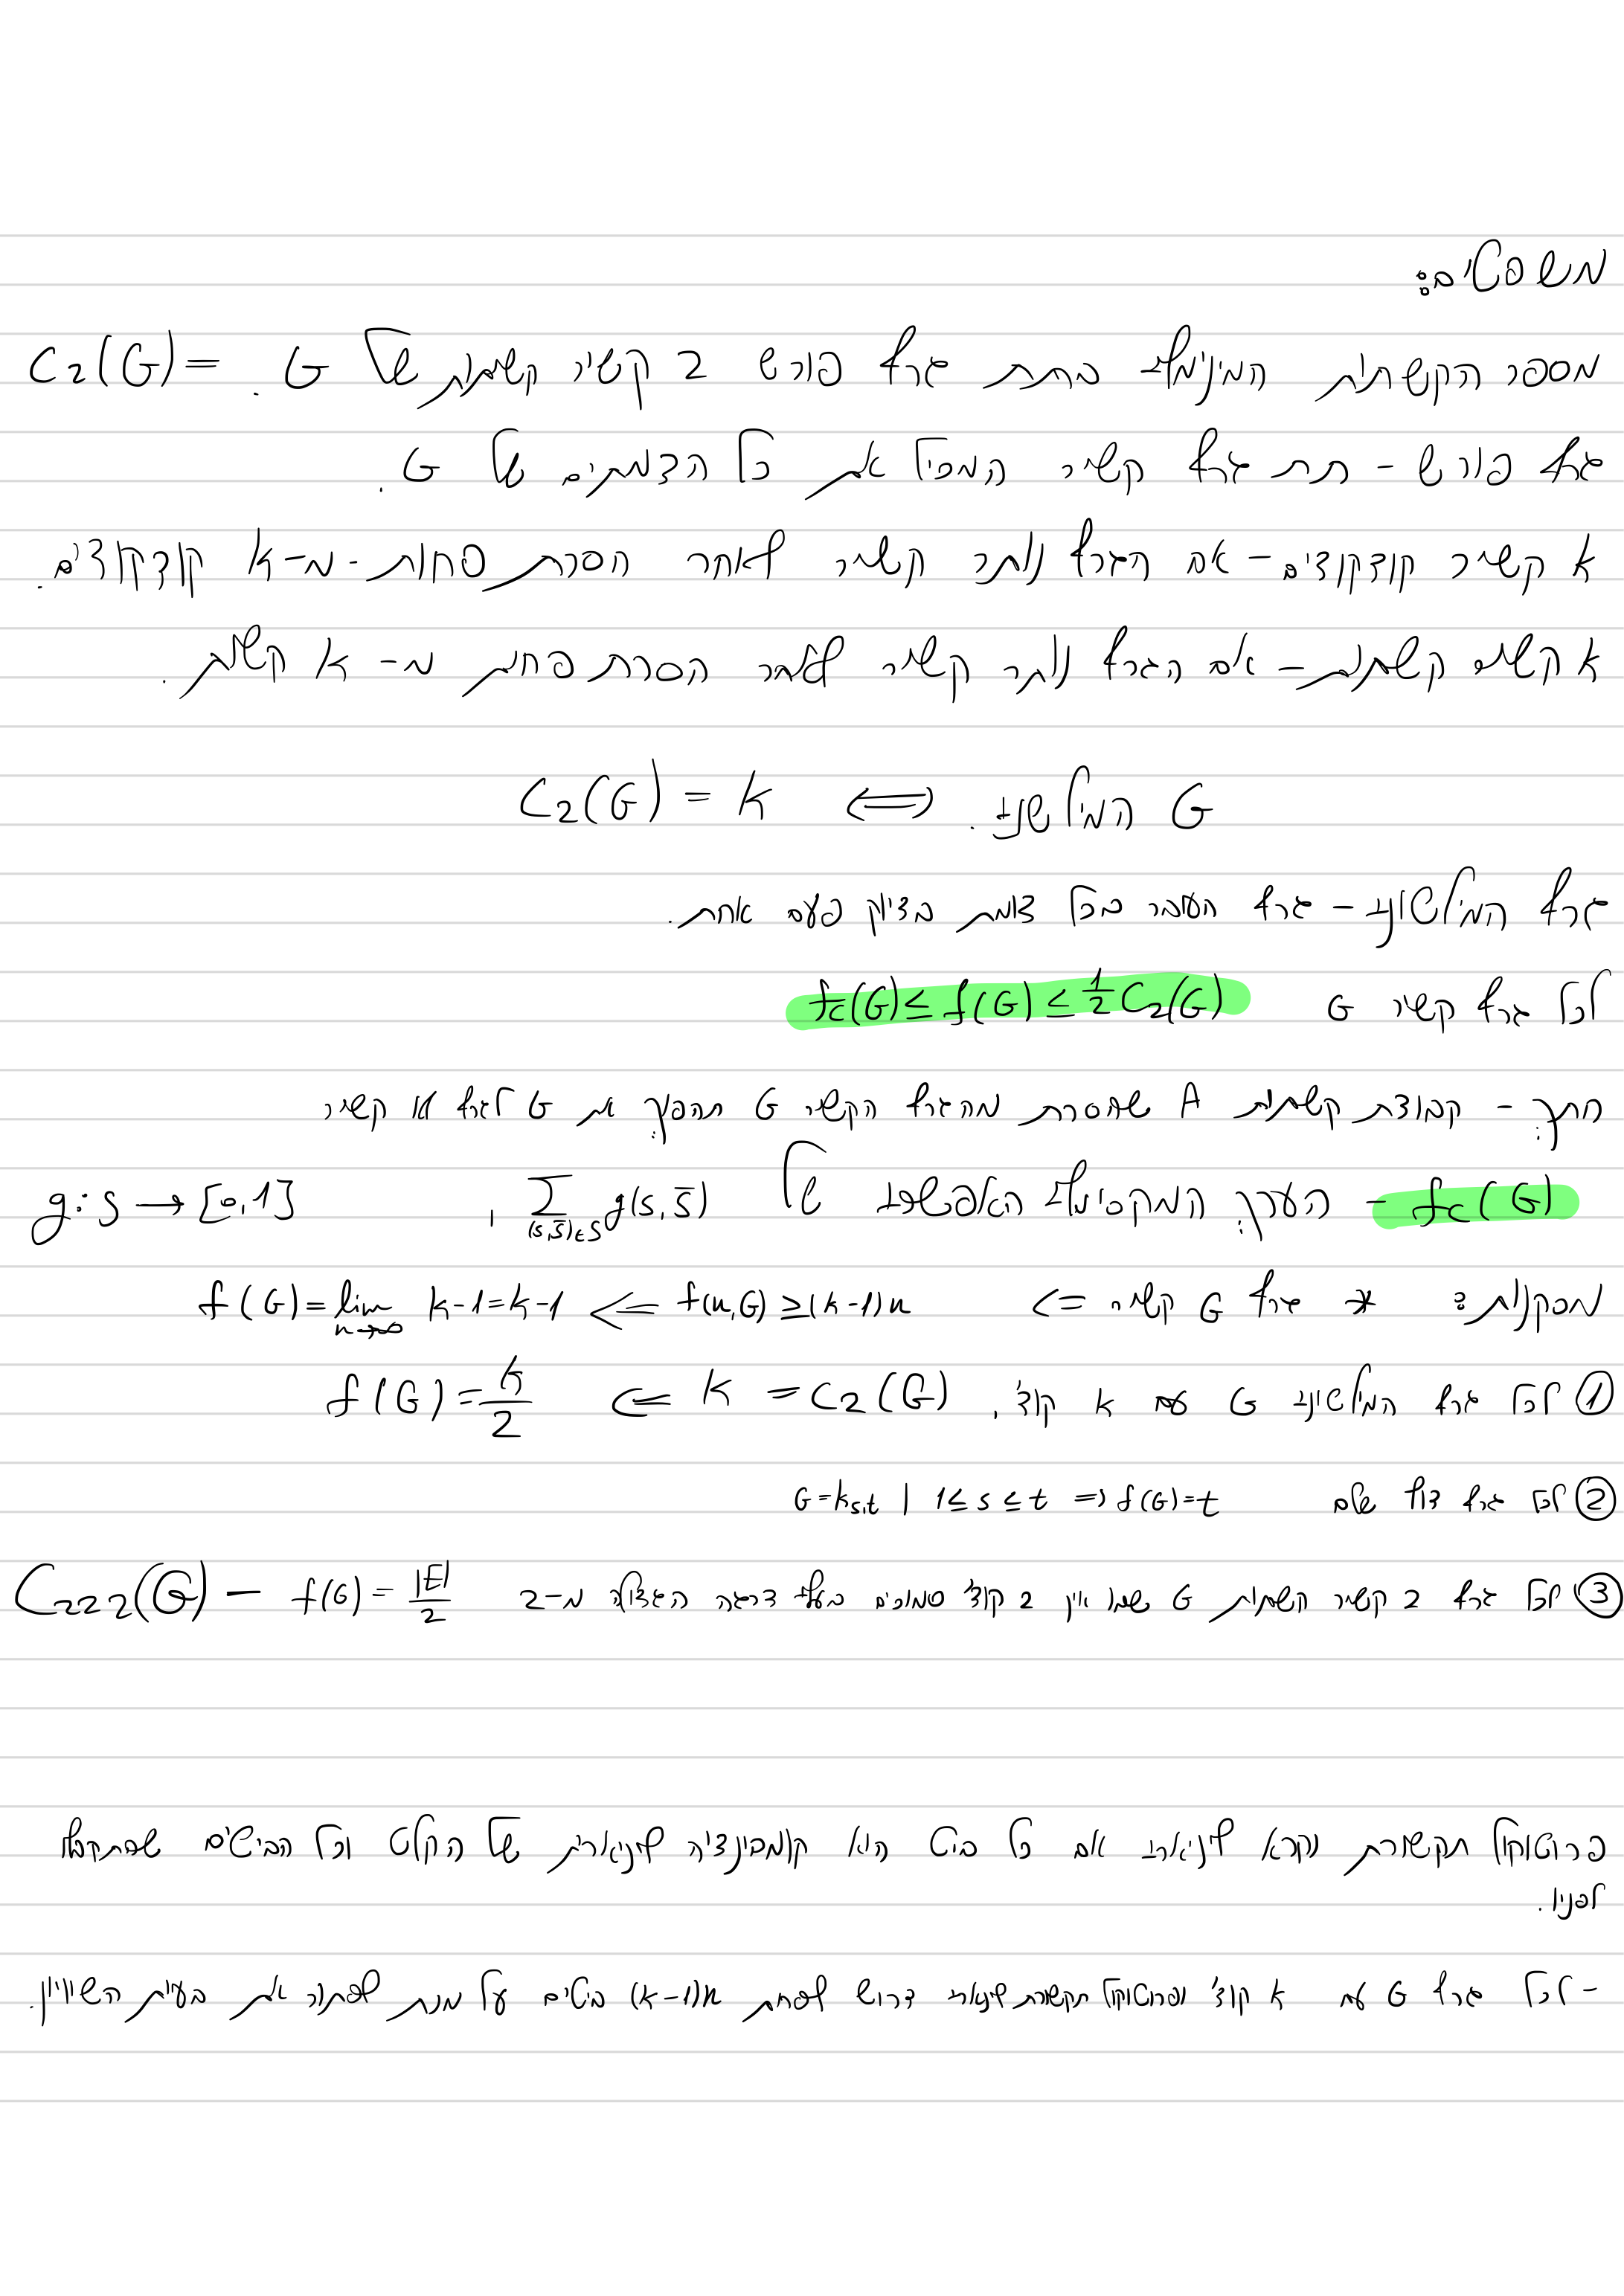 משפטים:
מספר הקשתות המינימלי בתת גרף פורש 2 קשיר קשתות של G. C₂(G)=
גרף פורש - תת גרף קשיר המכיל את כל הצמתים של G.
k קשיר קודקודים - אם הגרף נותר קשיר לאחר הסרת פחות מ-k קודקודים.
k קשיר קשתות - אם הגרף נותר קשיר לאחר הסרת פחות מ-k קשתות.
G המילטוני. ⟺ C₂(G) = k
גרף המילטוני - גרף העובר בכל צומת בדיוק פעם אחת.
לכל גרף קשיר G f_c(G) ≤ f(G) ≤ ½ C₂(G)
חתך - קבוצת קשתות A שהסרת מהגרף הקשיר G תהפוך את G לגרף לא קשיר
f_c(G) - הערך המקסימלי האפשרי של Σ_{(s,s̄)∈S} g(s,s̄) , g:S → [0,1]
מסקנות: * גרף G קשיר => f(n,G) ≥ (k-1)n <= f(G) = lim_{n→∞} k-1 = k-1
① לכל גרף המילטוני G עם k קוד', k = C₂(G) <= f(G) = k/2
② לכל גרף דוצ שלם G = k_{s,t} | 1 ≤ s ≤ t => f(G) = t
③ לכל גרף 2 קשיר קשתות G שבו אין 2 קוד' סמוכים בעלי דרגה הגדולה מ-2 f(G) = |E|/2 - C₂₂₂(G)
פרוטוקול תקשורת נקרא ליניארי אם כל ביט הוא קומבינציה ליניארית של הקלט וכל הביטים שהתקבלו
לפניו.
- לכל גרף G עם k קוד' ופרוטוקול תקשורת ליניארי דרוש לפחות (k-1)n ביטים על מנת לפתור את בעיית השוויון.